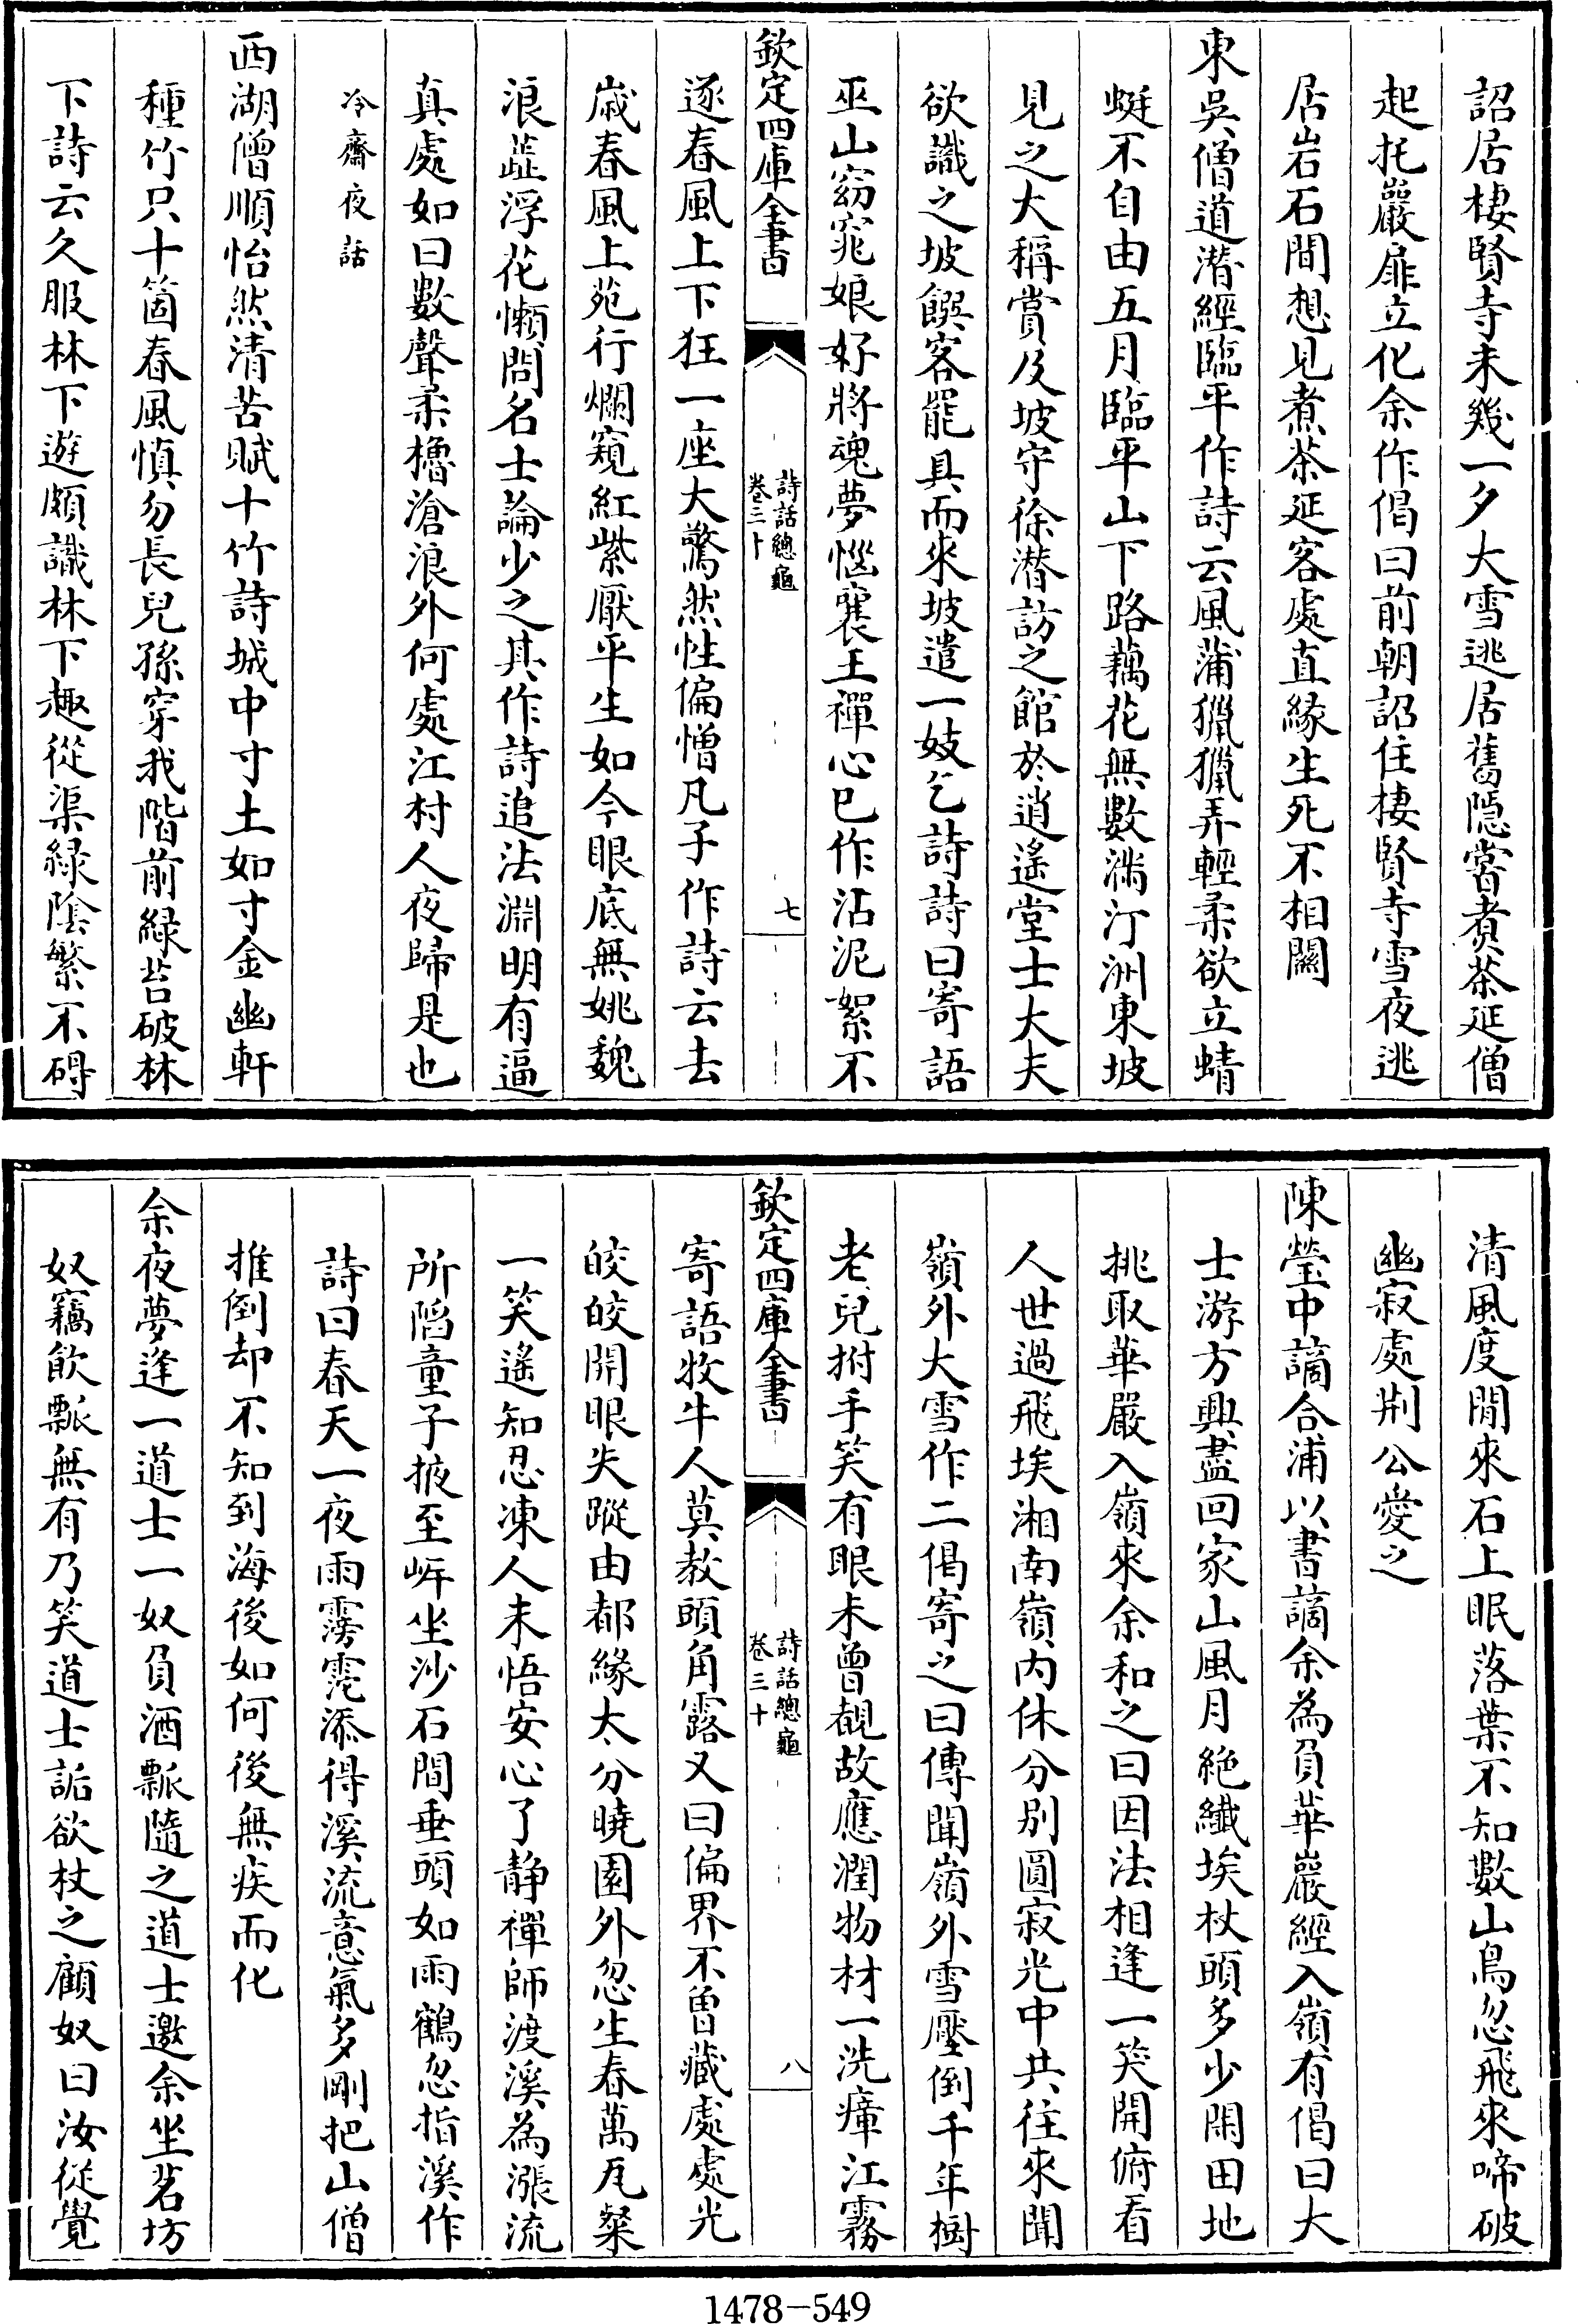 詔居棲賢寺未幾一夕大雪逃居舊隱嘗煮茶延僧
起托巖扉立化余作偈曰前朝詔住棲賢寺雪夜逃
居岩石間想見煮茶延客處直緣生死不相關
東吳僧道潛經臨平作詩云風蒲獵獵弄輕柔欲立蜻
蜓不自由五月臨平山下路藕花無數滿汀洲東坡
見之大稱賞及坡守徐潛訪之館於逍遙堂士大夫
欲識之坡饌客罷具而來坡遣一妓乞詩詩曰寄語
巫山窈窕娘好將魂夢惱襄王禪心已作沾泥絮不
欽定四庫全書
詩話總龜
卷三十
七
逐春風上下狂一座大驚然性偏憎凡子作詩云去
歲春風上苑行爛窺紅紫厭平生如今眼底無姚魏
浪蘂浮花懶問名士論少之其作詩追法淵明有逼
真處如曰數聲柔櫓滄浪外何處江村人夜歸是也
冷齋夜話
西湖僧順怡然清苦賦十竹詩城中寸土如寸金幽軒
種竹只十箇春風慎勿長兒孫穿我階前綠苔破林
下詩云久服林下遊頗識林下趣從渠綠陰繁不碍
清風度閒來石上眠落葉不知數山鳥忽飛來啼破
幽寂處荆公愛之
陳瑩中謫合浦以書謫余為負華巖經入嶺有偈曰大
士游方興盡回家山風月絶纖埃杖頭多少閒田地
挑取華嚴入嶺來余和之曰因法相逢一笑開俯看
人世過飛埃湘南嶺内休分别圓寂光中共往來聞
嶺外大雪作二偈寄之曰傳聞嶺外雪壓倒千年樹
老兒拊手笑有眼未曾覩故應潤物材一洗瘴江霧
欽定四庫全書
詩話總龜
卷三十
八
寄語牧牛人莫教頭角露又曰偏界不曽藏處處光
皎皎開眼失蹤由都緣太分曉園外忽生春萬瓦粲
一笑遙知忍凍人未悟安心了静禪師渡溪為漲流
所陷童子掖至岸坐沙石間垂頭如雨鶴忽指溪作
詩曰春天一夜雨霶霑添得溪流意氣多剛把山僧
推倒却不知到海後如何後無疾而化
余夜夢逢一道士一奴負酒瓢隨之道士邀余坐茗坊
奴竊飲瓢無有乃笑道士詬欲杖之顧奴曰汝從覺
1478-549